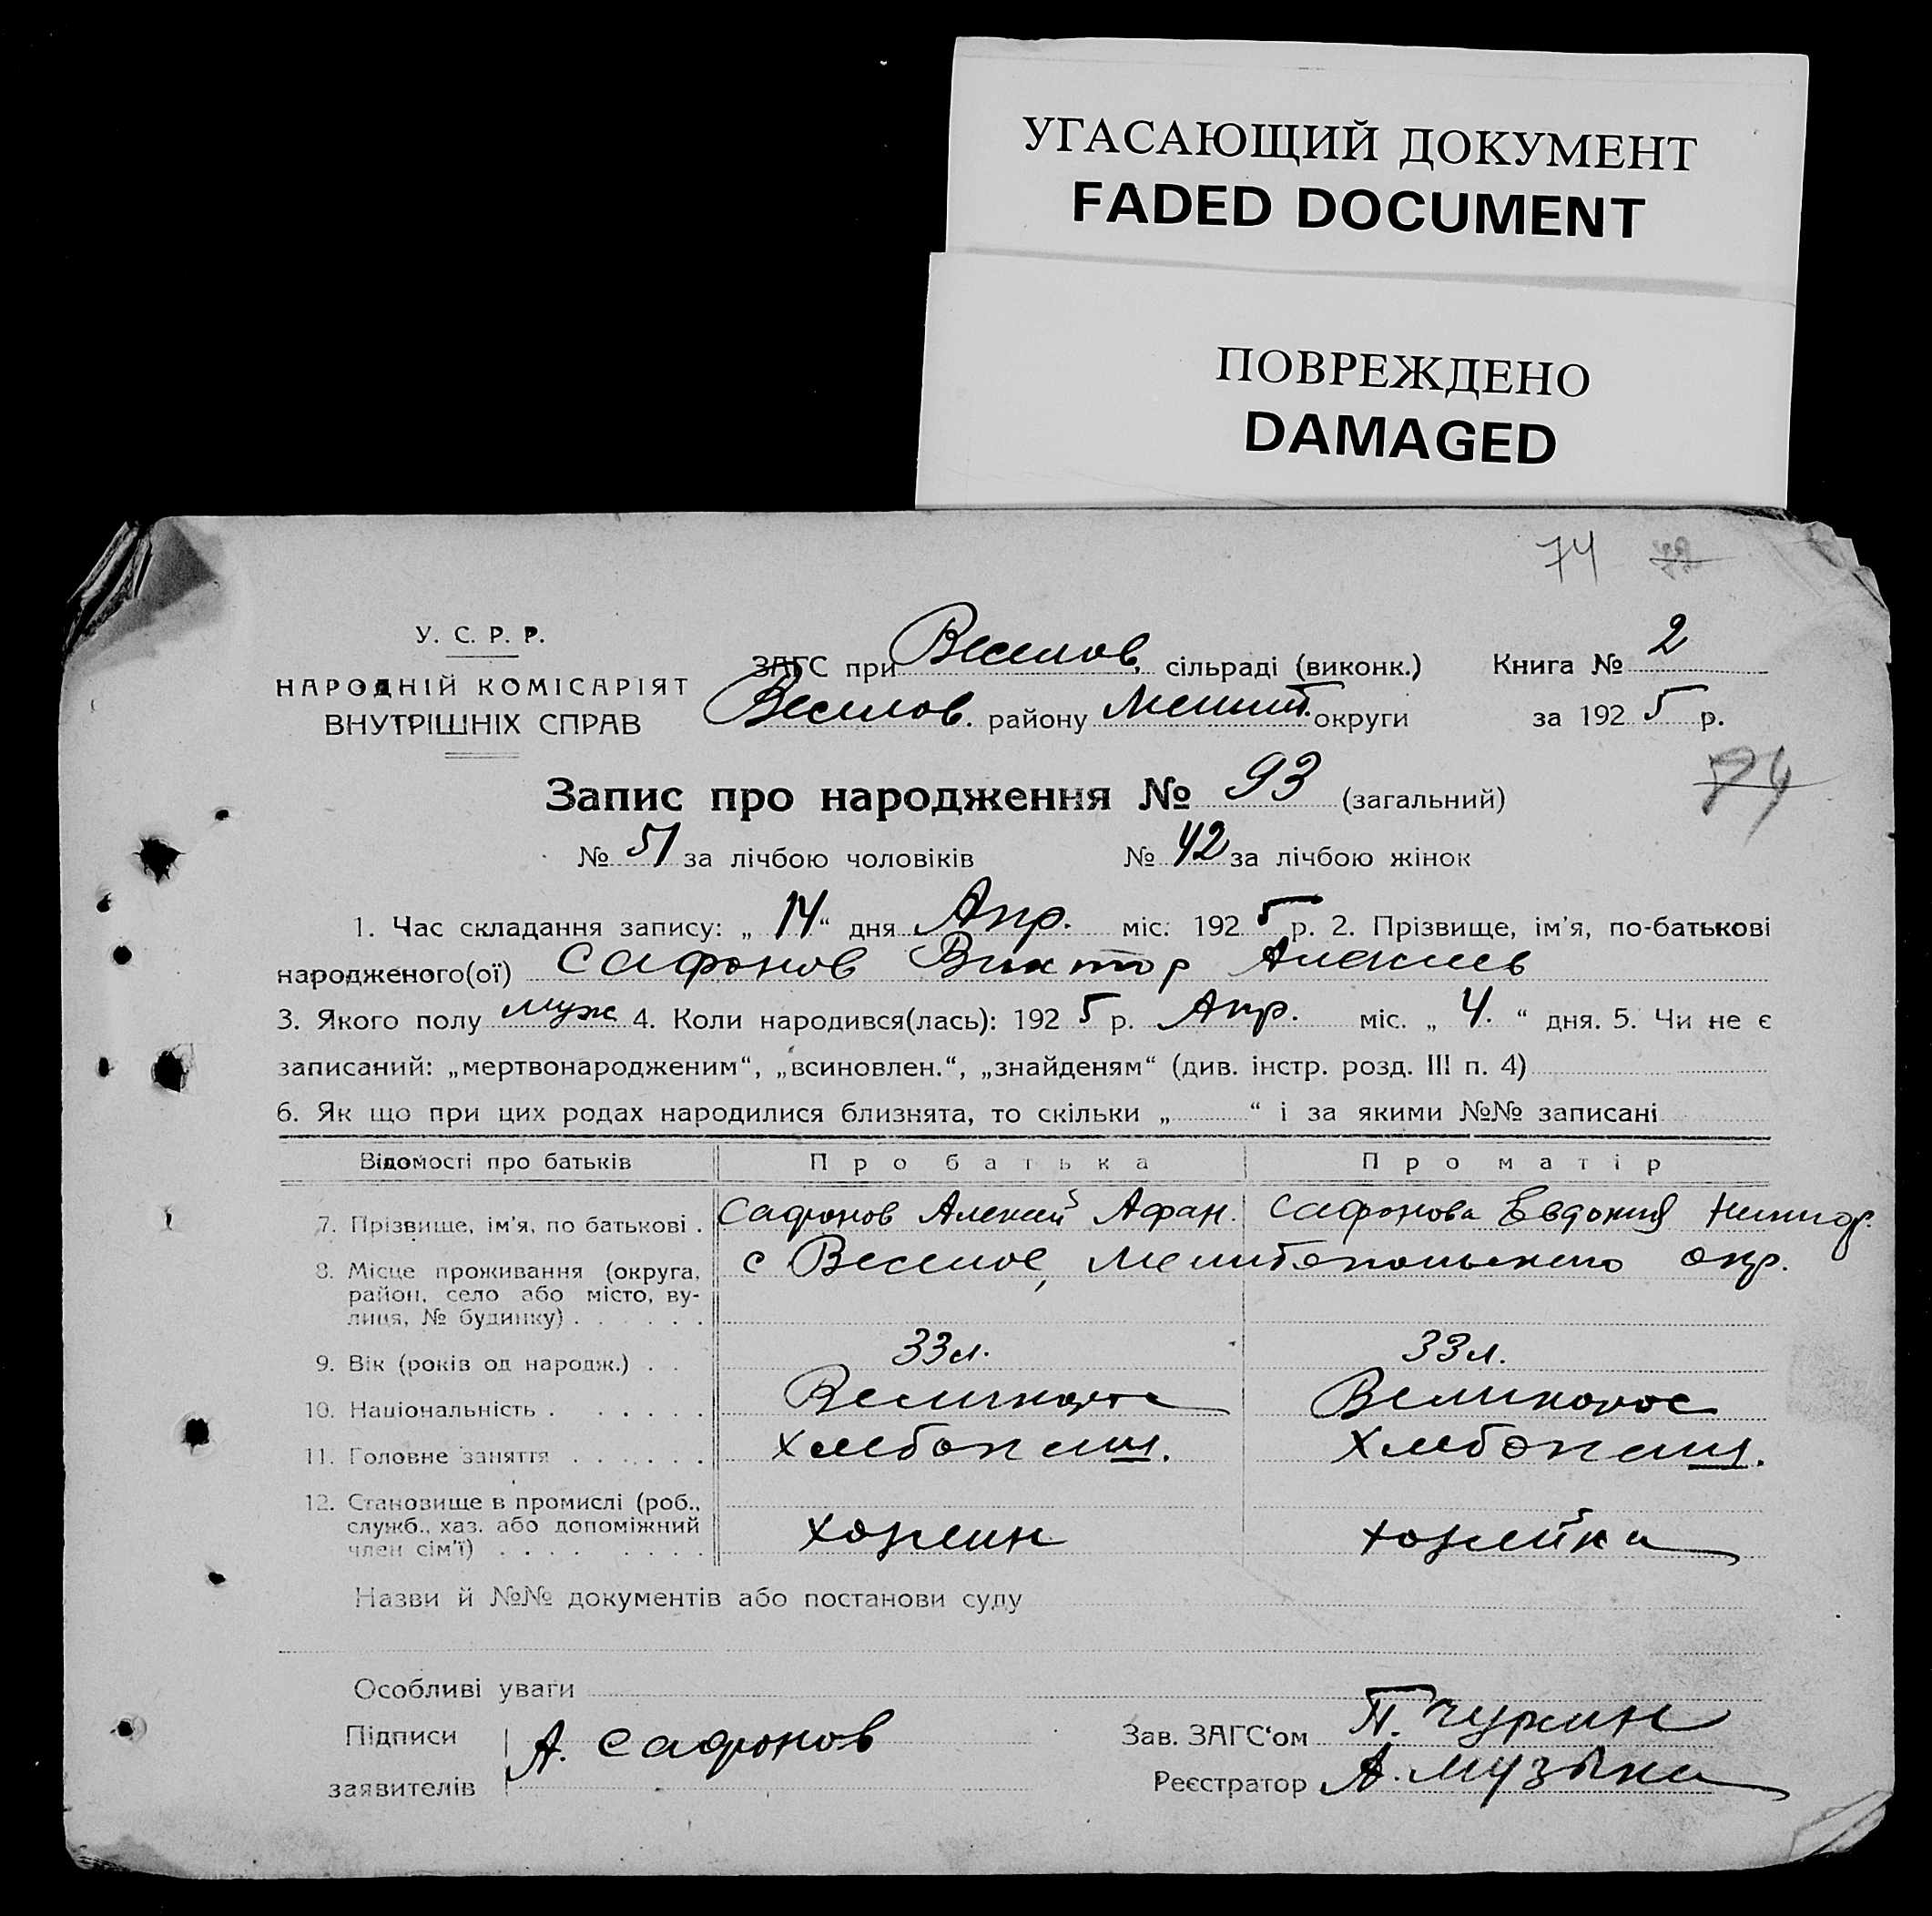 УГАСАЮЩИЙ ДОКУМЕНТ
FADED DOCUMENT
ПОВРЕЖДЕНО
DAMAGED
74
У. С. Р. Р.
НАРОДНІЙ КОМІСАРІЯТ
ВНУТРІШНІХ СПРАВ
ЗАГС при Веселов. сільраді (виконк.) Книга № 2
Веселов. району Мелит. округи за 1925 р.
74
Запис про народження № 93 (загальний)
№ 51 за лічбою чоловіків № 42 за лічбою жінок
1. Час складання запису: „14“ дня Апр. міс. 1925 р. 2. Прізвище, ім'я, по-батькові
народженого(ої) Сафонов Виктор Алексеев
3. Якого полу муж 4. Коли народився(лась): 1925 р. Апр. міс. „4.“ дня. 5. Чи не є
записаний: „мертвонародженим“, „всиновлен.“, „знайденям“ (див. інстр. розд. III п. 4)
6. Як що при цих родах народилися близнята, то скільки „ “ і за якими №№ записані
Відомості про батьків Про батька Про матір
7. Прізвище, ім'я, по батькові . Сафонов Алексей Афан. Сафонова Евдокия Никиф.
8. Місце проживання (округа, с Веселое, Мелитопольского окр.
район, село або місто, ву-
лиця, № будинку) . . . . . .
9. Вік (років од народж.) . . 33 л. 33 л.
10. Національність . . . . . . Великорос Великорос
11. Головне заняття . . . . . . Хлебопаш. Хлебопаш.
12. Становище в промислі (роб.,
служб., хаз. або допоміжний хозяин хозяйка
член сім'ї) . . . . . . . .
Назви й №№ документів або постанови суду
Особливі уваги
Підписи А. Сафонов Зав. ЗАГС'ом П. Чурмин
заявителів Реєстратор А. Музыка